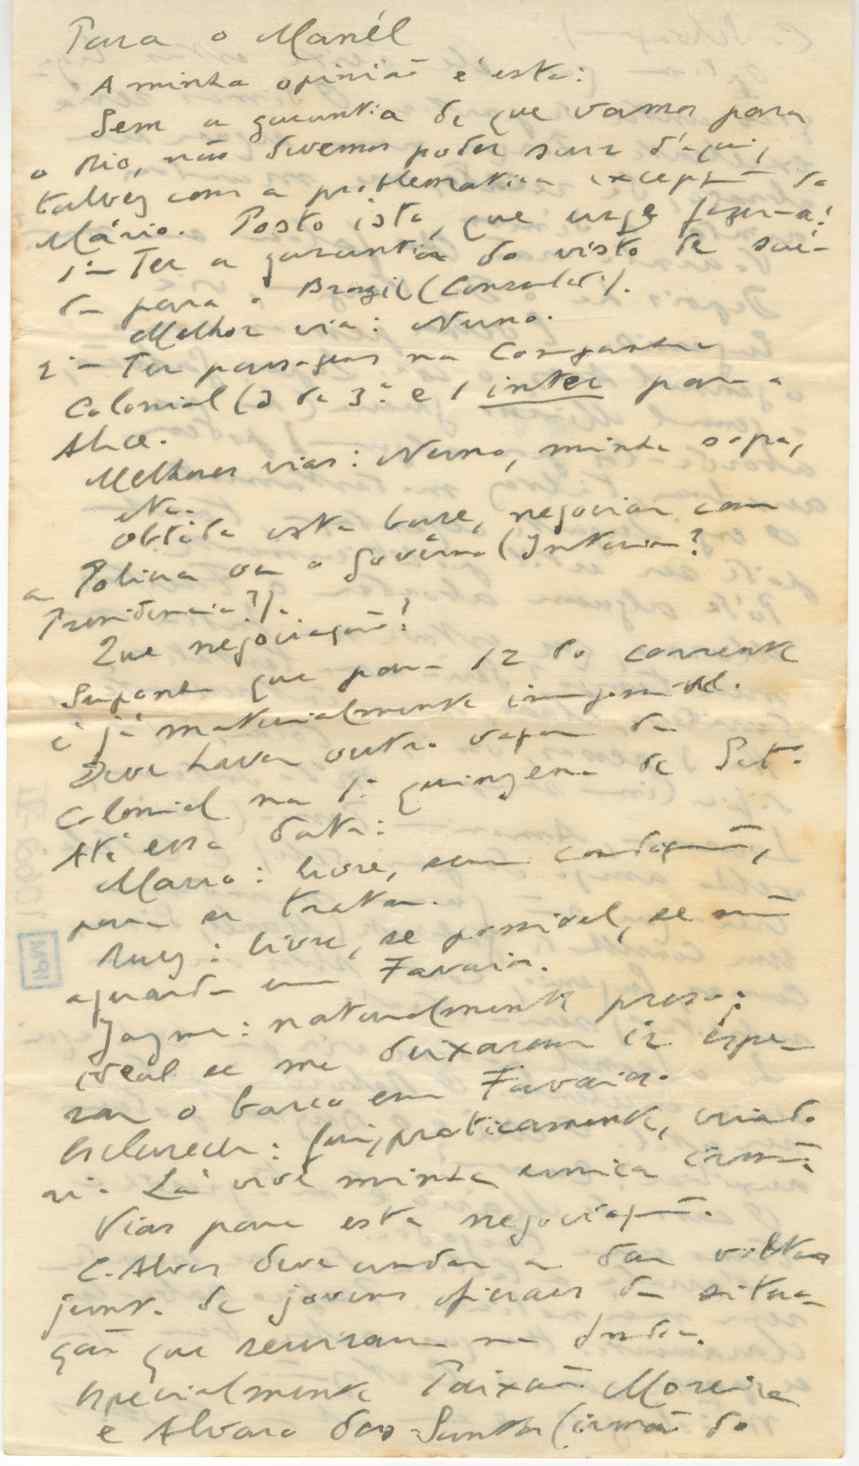 Para o Manél
A minha opinião é esta:
Sem a garantia de que vamos para
o Rio, não devemos poder sair d'aqui,
talvez com a problematica excepção do
Mário. Posto isto, que urge fazer-se?
1º- Ter a garantia do visto de saí-
da para o Brazil (Consulado).
Melhor via: Nuno.
2º- Ter passagens na Companhia
Colonial (3 de 3ª e 1 inter para a
Alice.
Melhores vias: Nuno, minha sogra,
etc.
Obtida esta base, negociar com
a Policia ou o Govêrno (Interior?
Presidencia?).
Que negociação?
Suponho que para 12 do corrente
é já materialmente impossivel.
Deve haver outro vapor da
Colonial na 1ª quinzena de Setº.
Até essa data:
Mario: livre, sem condições,
para se tratar.
Ruy: livre, se possivel, se não
aguarda em Favaios.
Jayme: naturalmente preso;
ideal se me deixarem ir espe-
rar o barco em Favaios.
Esclarecer: fui, praticamente, criado
ai. Lá vive minha unica irmã.
Vias para esta negociação.
C. Alves deve andar a dar voltas
junto de jovens oficiais da situa-
ção que serviram na
Especialmente Paixão Moreira
e Alvaro dos Santos (irmão do
IPM